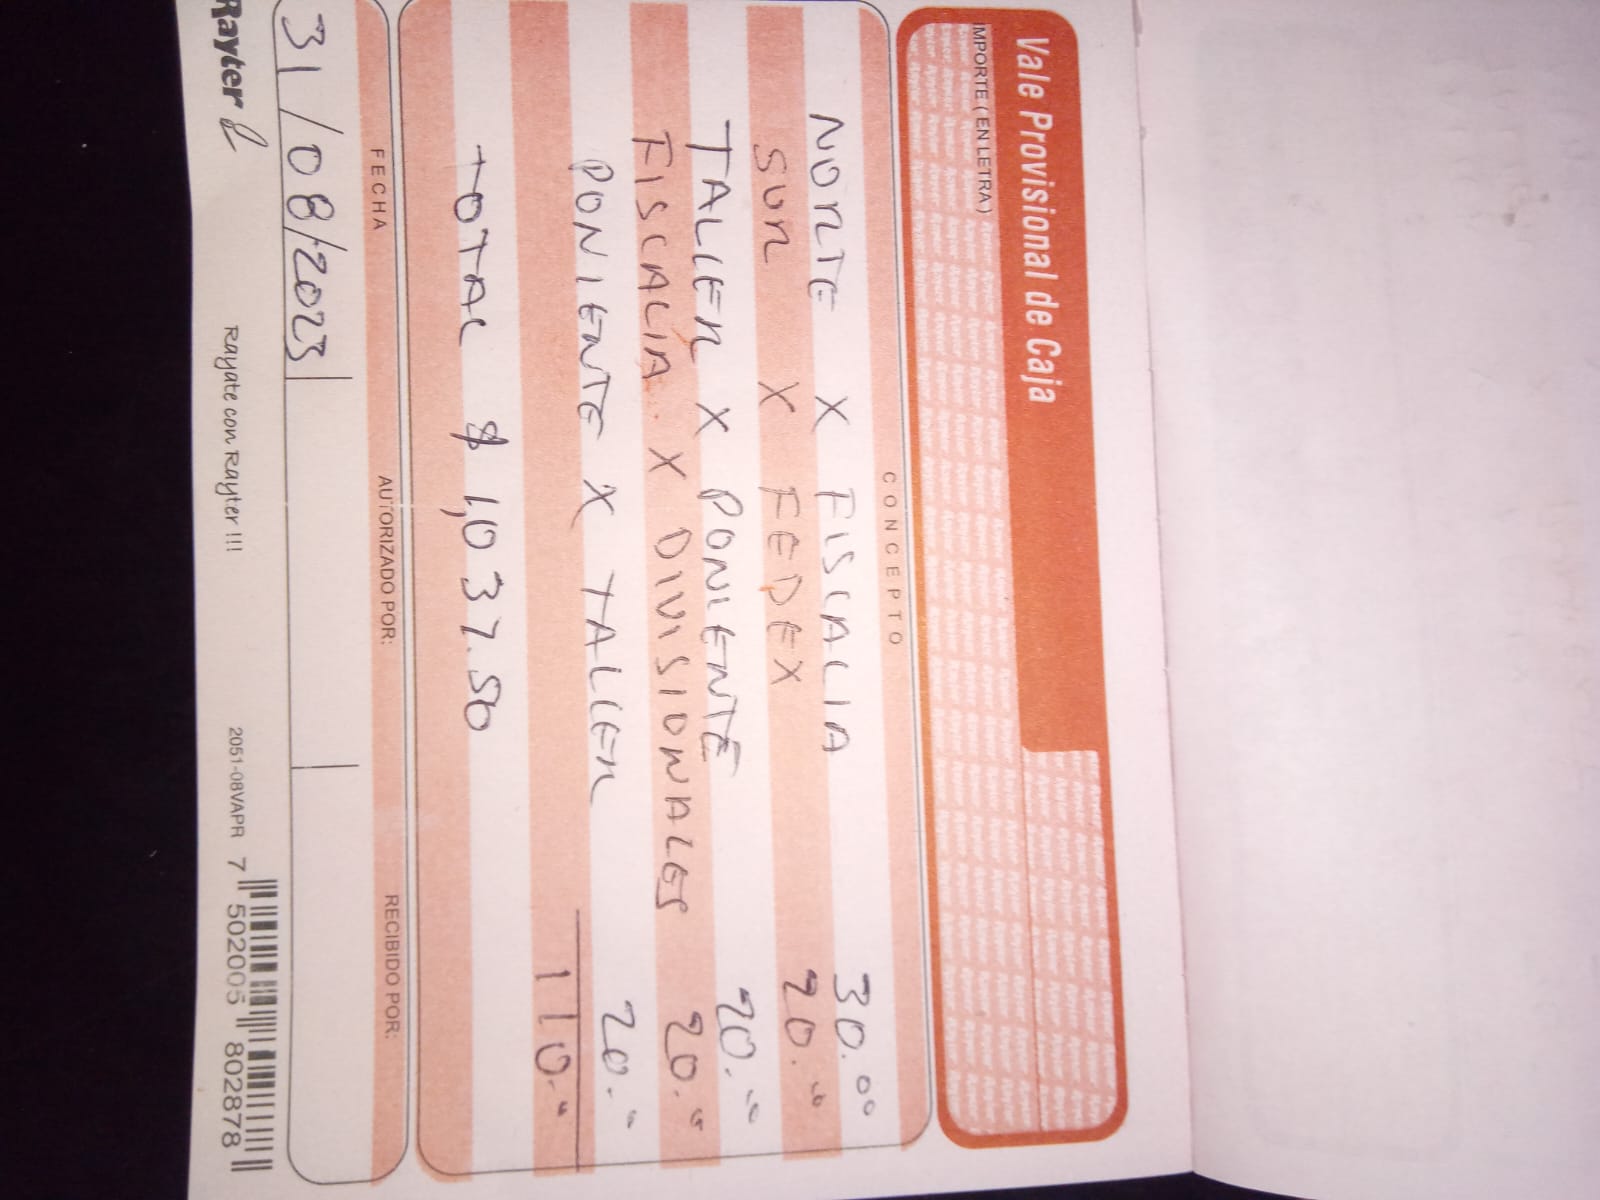 Vale Provisional de Caja
IMPORTE ( EN LETRA )
CONCEPTO
NORTE X FISCALIA 30.00
SUR X FEDEX 20."
TALLER X PONIENTE 20."
FISCALIA X DIVISIONALES 20."
PONIENTE X TALLER 20."
110."
TOTAL $ 1,037.50
FECHA AUTORIZADO POR: RECIBIDO POR:
31/08/2023
Rayter Rayate con Rayter !!! 2051-08VAPR 7 502005 802878